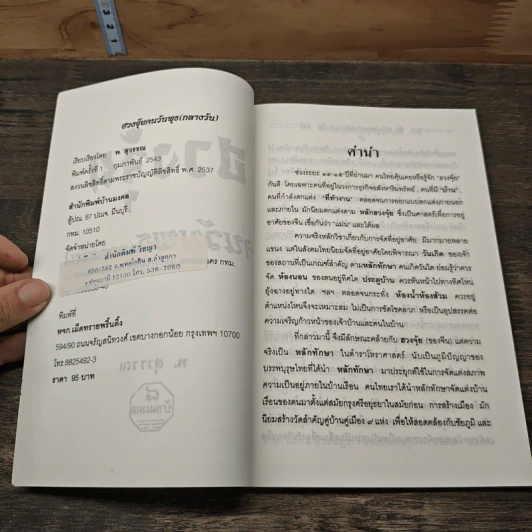 ฮวงจุ้ยคนวันพุธ(กลางวัน)
เรียบเรียงโดย พ. สุวรรณ
พิมพ์ครั้งที่ 1 กุมภาพันธ์ 2543
สงวนลิขสิทธิ์ตามพระราชบัญญัติลิขสิทธิ์ พ.ศ. 2537
สำนักพิมพ์บ้านมงคล
ตู้ปณ. 87 ปณจ. มีนบุรี
กทม. 10510
จัดจำหน่ายโดย
สำนักพิมพ์
กทม
พิมพ์ที่
หจก.เม็ดทรายพริ้นติ้ง
594/90 ถนนจรัญสนิทวงศ์ เขตบางกอกน้อย กรุงเทพฯ 10700
โทร.8825492-3
ราคา 95 บาท
คำนำ
ช่วงระยะ ๑๔-๑๕ ปีที่ผ่านมา คนไทยคุ้นเคยหรือรู้จัก "ฮวงจุ้ย"
กันดี โดยเฉพาะคนที่อยู่ในวงการธุรกิจอสังหาริมทรัพย์ คนที่มี "บ้าน"
คนที่กำลังตกแต่ง "ที่ทำงาน" ตลอดจนการออกแบบตกแต่งภายนอก
และภายใน มักนิยมตกแต่งตาม หลักฮวงจุ้ย ซึ่งเป็นศาสตร์เพื่อการอยู่
อาศัยของจีน เชื่อกันว่า "แม่น" และได้ผล
ความจริงหลักวิชาเกี่ยวกับการจัดที่อยู่อาศัย มีมากมายหลาย
แขนง แต่ในสังคมไทยนิยมจัดที่อยู่อาศัยโดยพิจารณา วันเกิด ของเจ้า
ของสถานที่เป็นเกณฑ์สำคัญ ตามหลักทักษา คนเกิดวันใด ย่อมรู้ว่าควร
จัด ห้องนอน ของตนอยู่ทิศใด ประตูบ้าน ควรหันหน้าไปทางทิศไหน
ยุ้งฉางอยู่ทางใด ฯลฯ ตลอดจนกระทั่ง ห้องน้ำห้องส้วม ควรอยู่
ตำแหน่งไหนจึงจะเหมาะสม ไม่เป็นการขัดโชคลาภ หรือเป็นอุปสรรคต่อ
ความเจริญก้าวหน้าของเจ้าบ้านและคนในบ้าน
ที่กล่าวมานี้ จึงมีลักษณะคล้ายกับ ฮวงจุ้ย (ของจีน) แต่ความ
จริงเป็น หลักทักษา ในตำราโหราศาสตร์ นับเป็นภูมิปัญญาของ
บรรพบุรุษไทยที่ได้นำ หลักทักษา มาประยุกต์ใช้ในการจัดแต่งสภาพ
ความเป็นอยู่ภายในบ้านเรือน คนไทยเราได้นำหลักทักษาจัดแต่งบ้าน
เรือนของตนมาตั้งแต่สมัยกรุงศรีอยุธยาในสมัยก่อน การสร้างเมือง มัก
นิยมสร้างวัดสำคัญคู่บ้านคู่เมือง ๙ แห่ง เพื่อให้สอดคล้องกับชัยภูมิ และ